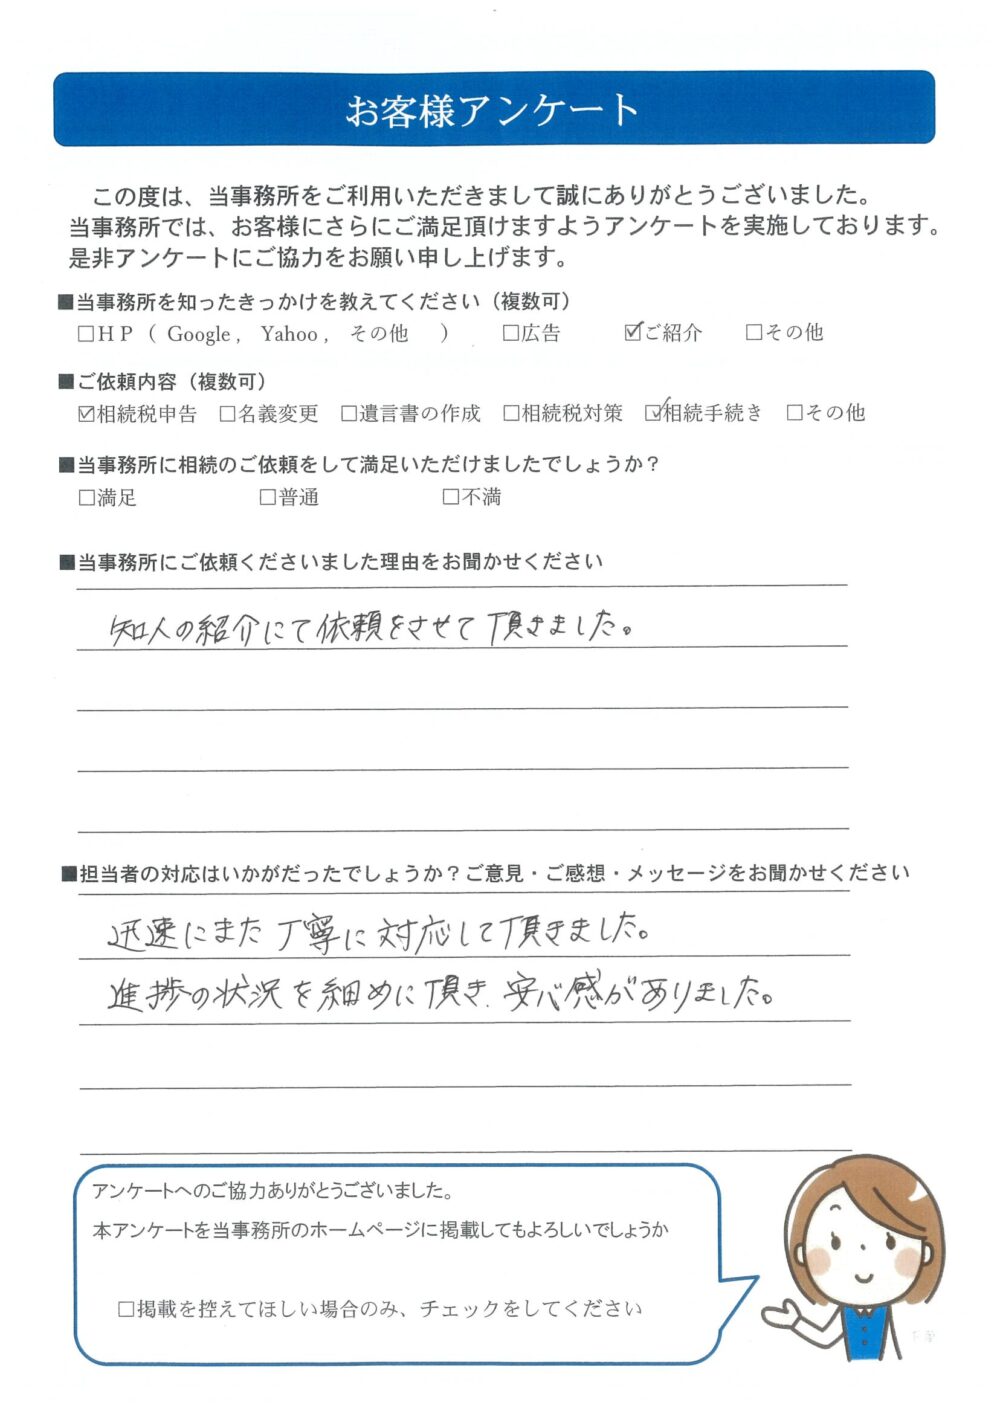 お客様アンケート
この度は、当事務所をご利用いただきまして誠にありがとうございました。
当事務所では、お客様にさらにご満足頂けますようアンケートを実施しております。
是非アンケートにご協力をお願い申し上げます。
■当事務所を知ったきっかけを教えてください（複数可）
□ＨＰ（ Google , Yahoo , その他 ） □広告 ☑ご紹介 □その他
■ご依頼内容（複数可）
☑相続税申告 □名義変更 □遺言書の作成 □相続税対策 ☑相続手続き □その他
■当事務所に相続のご依頼をして満足いただけましたでしょうか？
□満足 □普通 □不満
■当事務所にご依頼くださいました理由をお聞かせください
知人の紹介にて依頼をさせて頂きました。
■担当者の対応はいかがだったでしょうか？ご意見・ご感想・メッセージをお聞かせください
迅速にまた丁寧に対応して頂きました。
進捗の状況を細めに頂き、安心感がありました。
アンケートへのご協力ありがとうございました。
本アンケートを当事務所のホームページに掲載してもよろしいでしょうか
□掲載を控えてほしい場合のみ、チェックをしてください